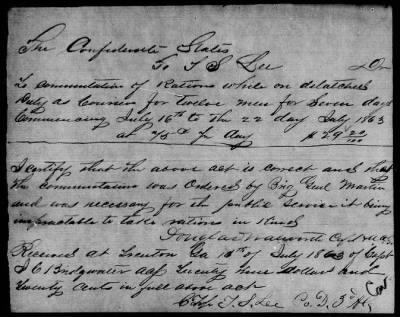 The Confederate States
To T S Lee Dr
To commutation of Rations while on detached
duty as Courier for twelve men for Seven days
Commencing July 16th to the 22 day July 1863
at 75c pr day $ 29 20/100
I certify that the above act is correct and that
the commutation was Ordered by Brig Genl Martin
and was necessary for the public service it being
impracticable to take rations in kind
Douglas Cap
Received at Trenton Ga 16th of July 1863 of Capt
J C Bridgwater aaf Twenty nine dollars and
twenty cents in full above act
T. S. Lee Co. D, 3d Ala Cav